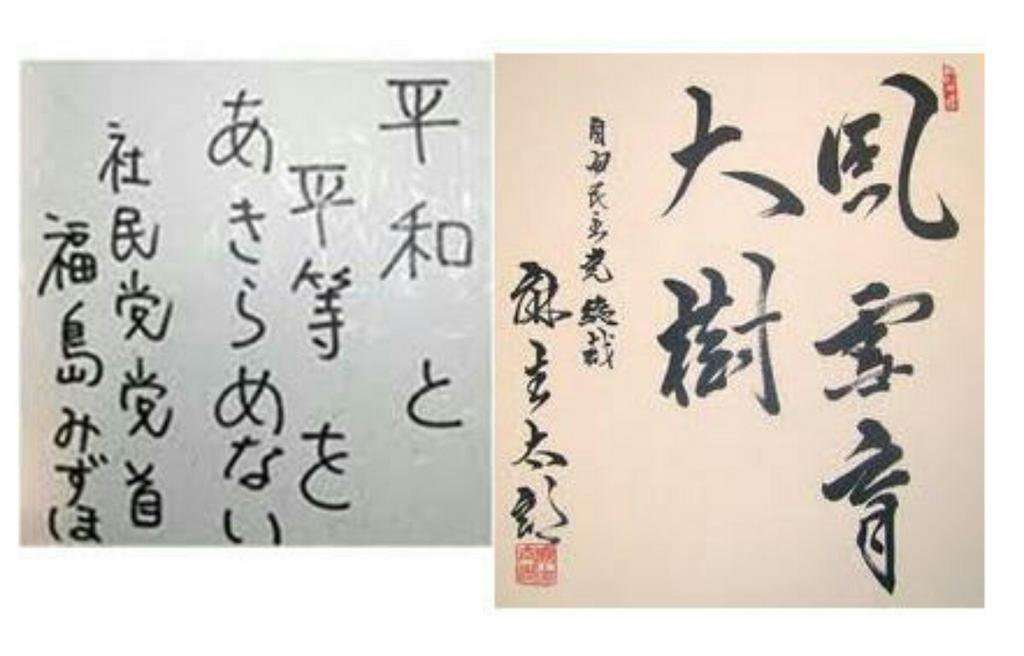 平和と
平等を
あきらめない
社民党党首
福島みずほ
風雪育
大樹
自由民主党総裁
麻生太郎